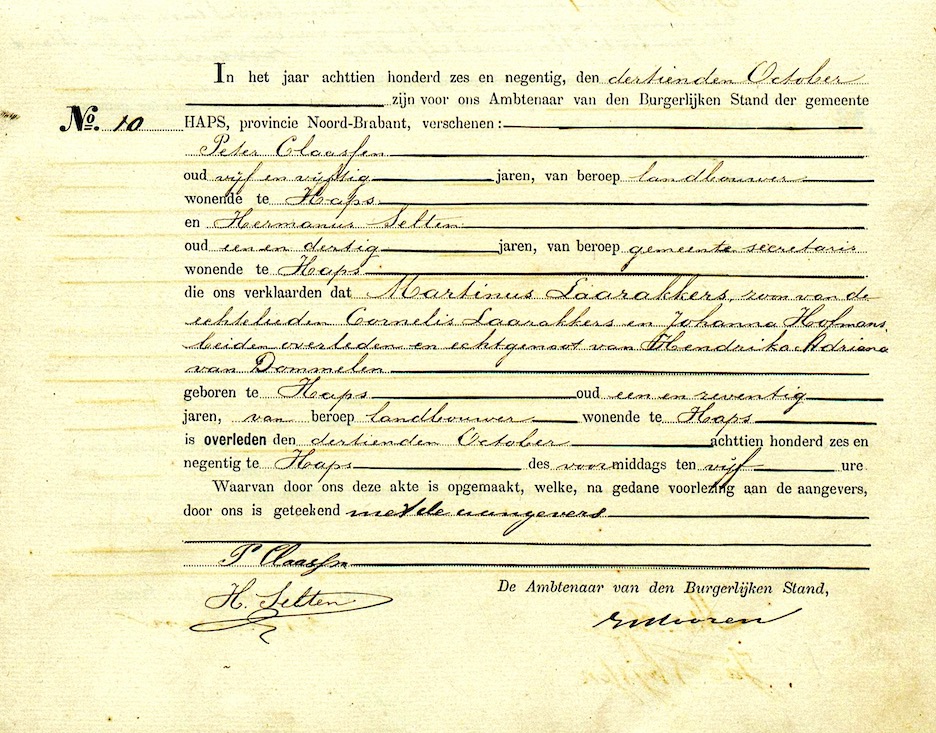 In het jaar achttien honderd zes en negentig, den dertienden October
zijn voor ons Ambtenaar van den Burgerlijken Stand der gemeente
No. 10 HAPS, provincie Noord-Brabant, verschenen:
Peter Claassen
oud vijf en vijftig jaren, van beroep landbouwer
wonende te Haps
en Hermanus Selten
oud een en dertig jaren, van beroep gemeente secretaris
wonende te Haps
die ons verklaarden dat Martinus Laarakkers, zoon van de
echtelieden Cornelis Laarakkers en Johanna Hofmans,
beiden overleden en echtgenoot van Hendrika Adriana
van Dommelen
geboren te Haps oud een en zeventig
jaren, van beroep landbouwer wonende te Haps
is overleden den dertienden October achttien honderd zes en
negentig te Haps des voormiddags ten vijf ure
Waarvan door ons deze akte is opgemaakt, welke, na gedane voorlezing aan de aangevers,
door ons is geteekend met de aangevers
P Claassen
H. Selten
De Ambtenaar van den Burgerlijken Stand,